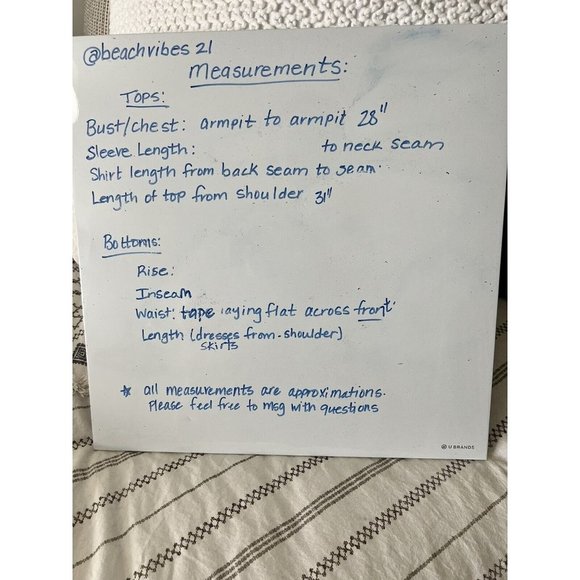 @beachvibes 21
Measurements:
Tops:
Bust/chest: armpit to armpit 28"
Sleeve Length: to neck seam
Shirt length from back seam to seam.
Length of top from shoulder 31"
Bottoms:
Rise:
Inseam
Waist: tape laying flat across front.
Length (dresses from shoulder)
skirts
* all measurements are approximations.
Please feel free to msg with questions
U BRANDS